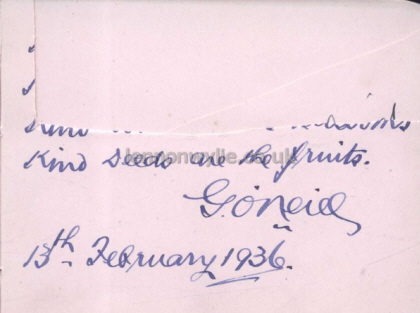 Kind Deeds are the fruits.
lennonwylie.co.uk
G. O'Neill
13th. February 1936.